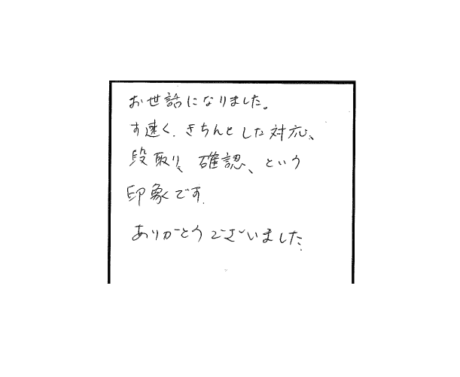 お世話になりました。
す速く、きちんとした対応、
段取り、確認、という
印象です。
ありがとうございました。